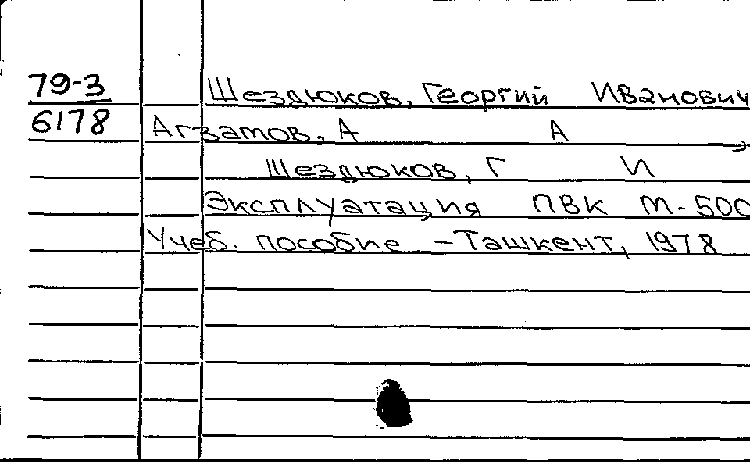 79-3 Шездюков, Георгий Иванович
6178 Агзамов, А А
Шездюков, Г И
Эксплуатация ПВК М-500
Учеб. пособие – Ташкент, 1978